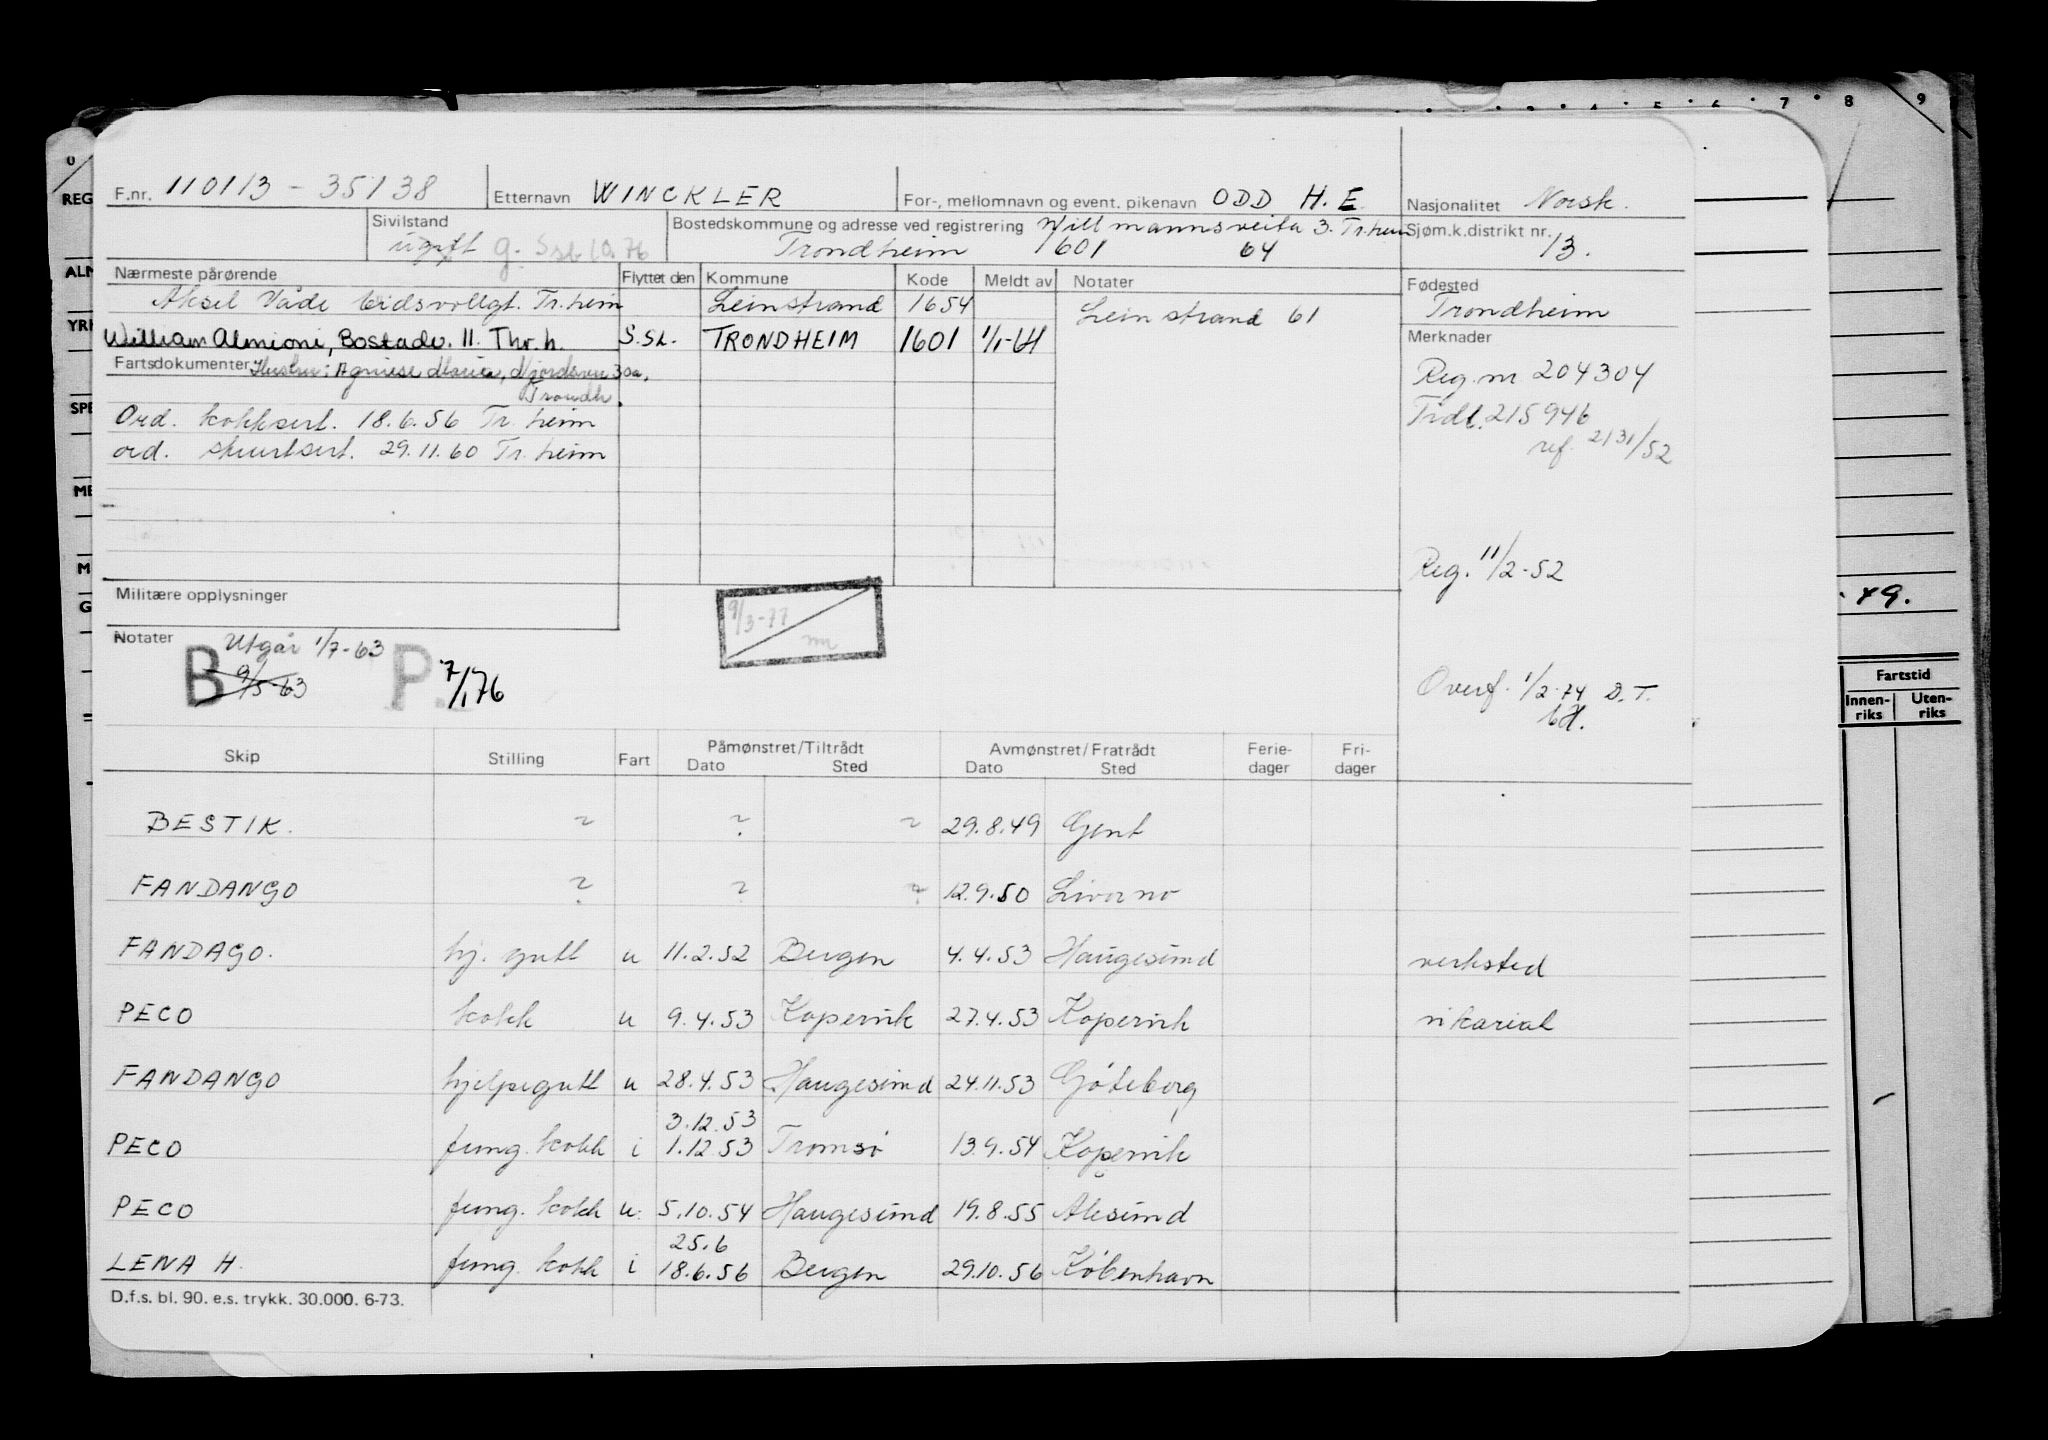 F.nr. 110113 - 35138 Etternavn WINCKLER For-, mellomnavn og event. pikenavn ODD H.E. Nasjonalitet Norsk.
Sivilstand ugift g. Ssb 10.76 Bostedskommune og adresse ved registrering Willmannsveita 3. Tr.heim Trondheim 1601 64 Sjøm.k.distrikt nr. 13.
Nærmeste pårørende Flyttet den Kommune Kode Meldt av Notater Fødested
Aksel Våde Eidsvollgt. Tr.heim Leinstrand 1654 Leinstrand 61 Trondheim
William Almioni, Bostadv. 11. Thr.h. S.SL. TRONDHEIM 1601 1/1-64 Merknader
Fartsdokumenter Hustru: Agniese Maria, Njordsvn 30a, Trondh.
Reg.nr 204304
Ord. kokksert. 18.6.56 Tr.heim
Tidl. 215946
ord. stuertsert. 29.11.60 Tr.heim
ref. 2131/52
Reg. 11/2-52
Militære opplysninger
9/3-77
Notater Utgår 1/7-63
B 9/5-63 P. 7/1 76
Overf. 1/2-74 D.T.
Skip Stilling Fart Påmønstret/Tiltrådt Dato Sted Avmønstret/Fratrådt Dato Sted Ferie-dager Fri-dager
BESTIK. ? ? ? 29.8.49 Gent
FANDANGO ? ? ? 12.9.50 Livorno
FANDAGO. hj. gutt u 11.2.52 Bergen 4.4.53 Haugesund verksted
PECO kokk u 9.4.53 Kopervik 27.4.53 Kopervik vikariat
FANDANGO hjelpegutt u 28.4.53 Haugesund 24.11.53 Göteborg
3.12.53
PECO fung. kokk i 1.12.53 Tromsø 13.9.54 Kopervik
PECO fung. kokk u. 5.10.54 Haugesund 19.8.55 Ålesund
25.6
LENA H. fung. kokk i 18.6.56 Bergen 29.10.56 København
D.f.s. bl. 90. e.s. trykk. 30.000. 6-73.
0
REG
ALM
YRK
SPE
ME
M
G
7 8 9
49.
Fartstid
Innen-riks Uten-riks